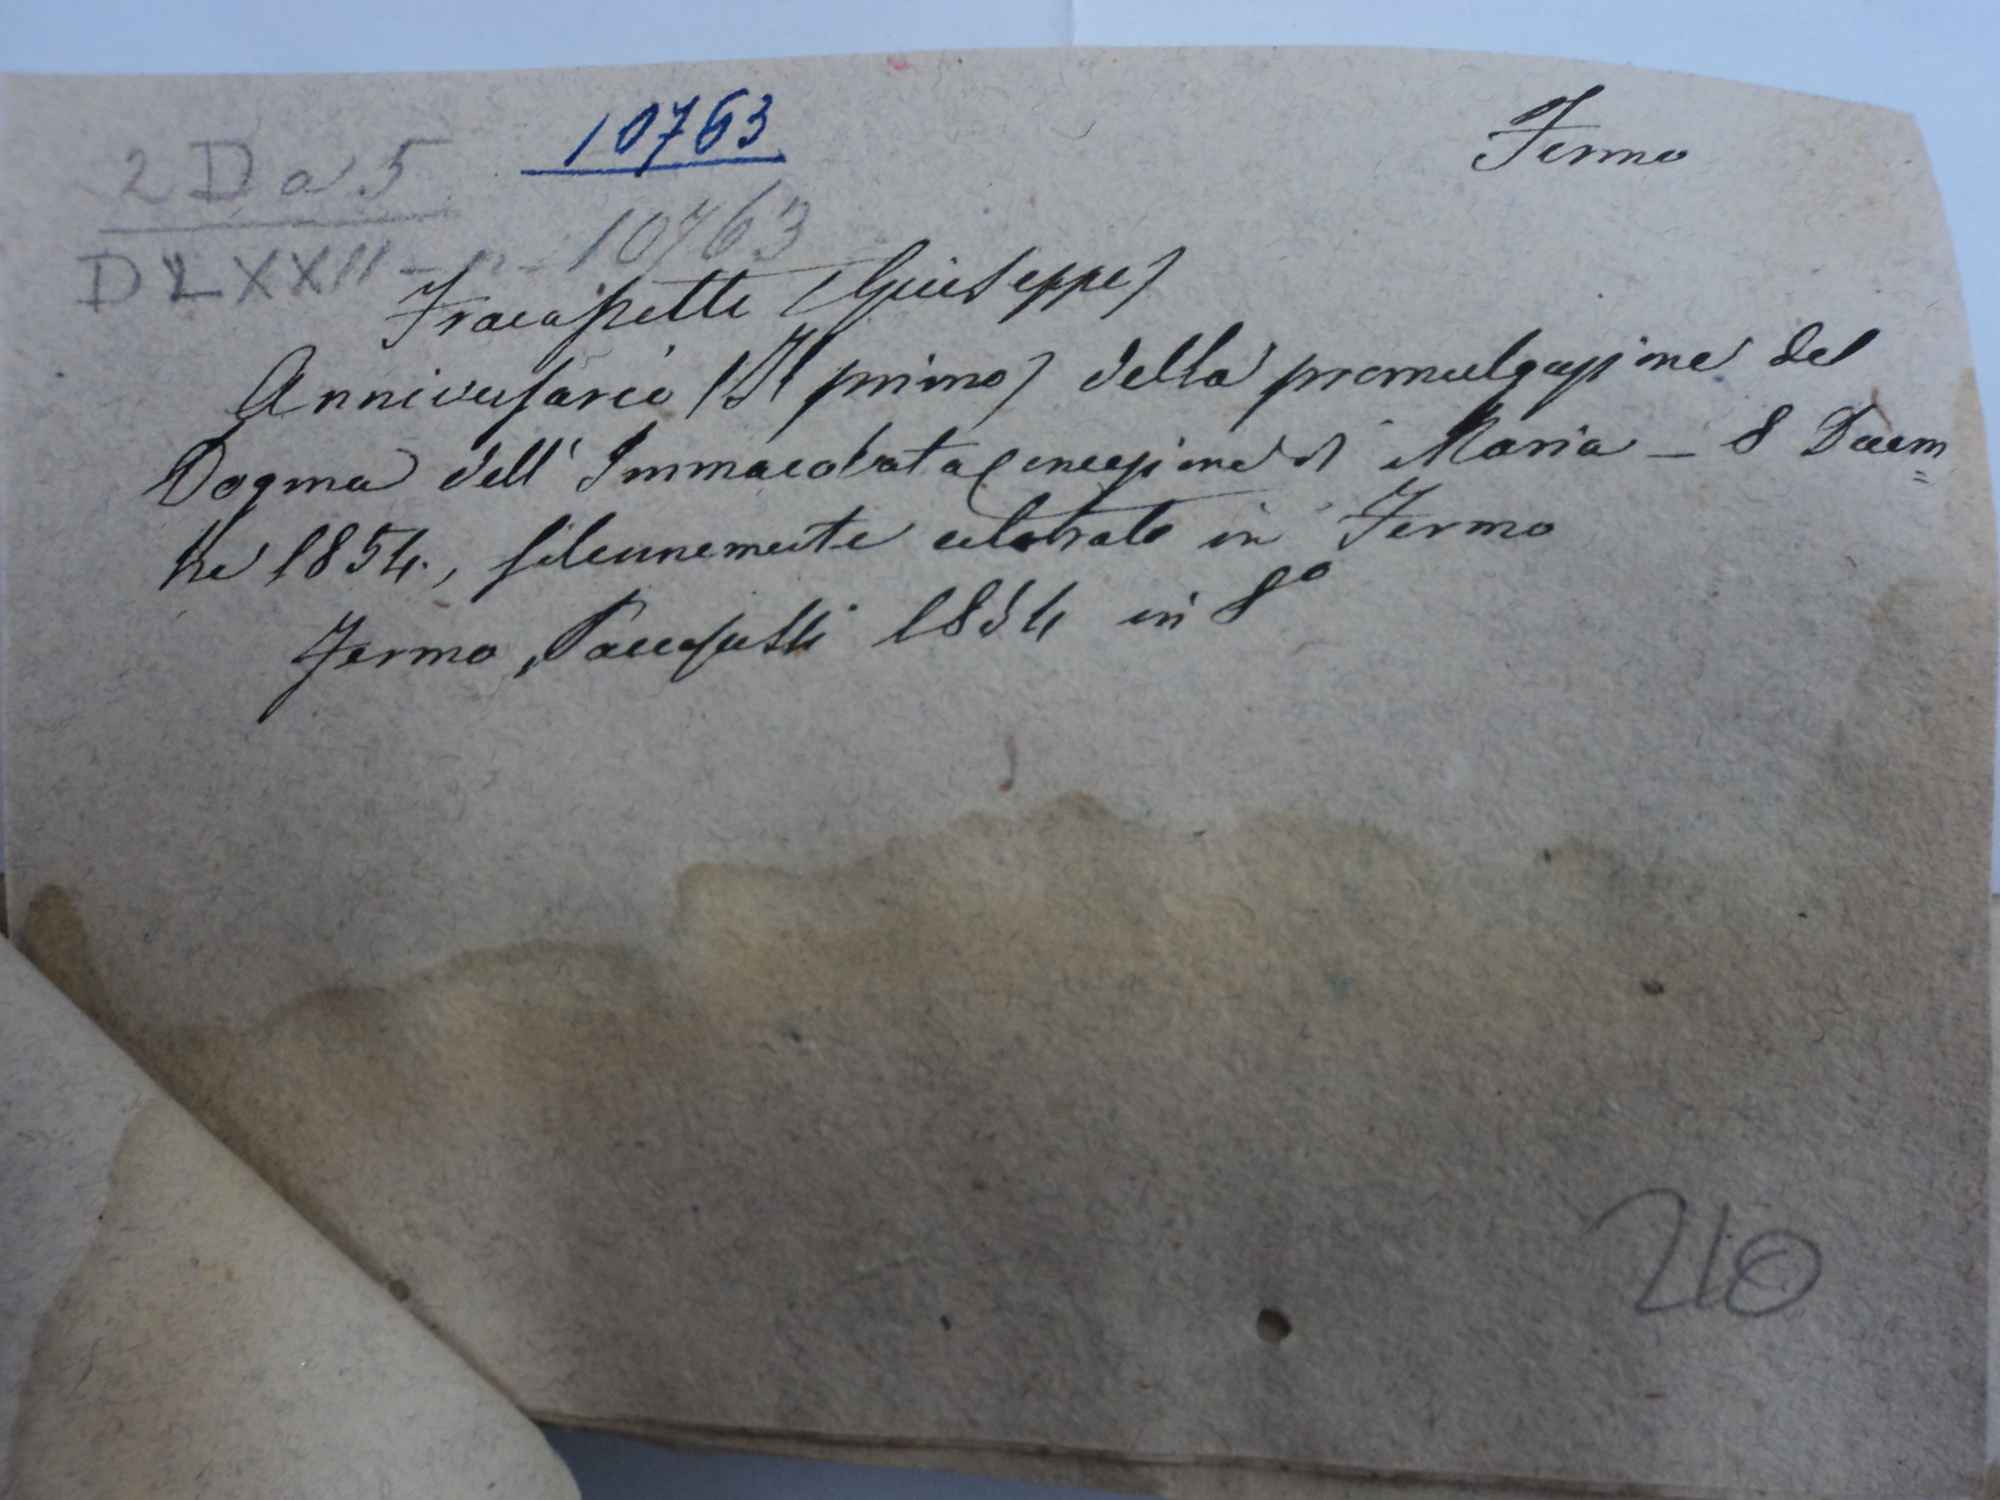 10763
Fermo
2 D a 5
DLXXII - n - 10763
Fracassetti (Giuseppe)
Anniversario (Il primo) della promulgazione del
Dogma dell' Immacolata Concezione di Maria - 8 Decem=
bre 1854, solennemente celebrato in Fermo
Fermo, Paccasassi 1854 in 8º
210